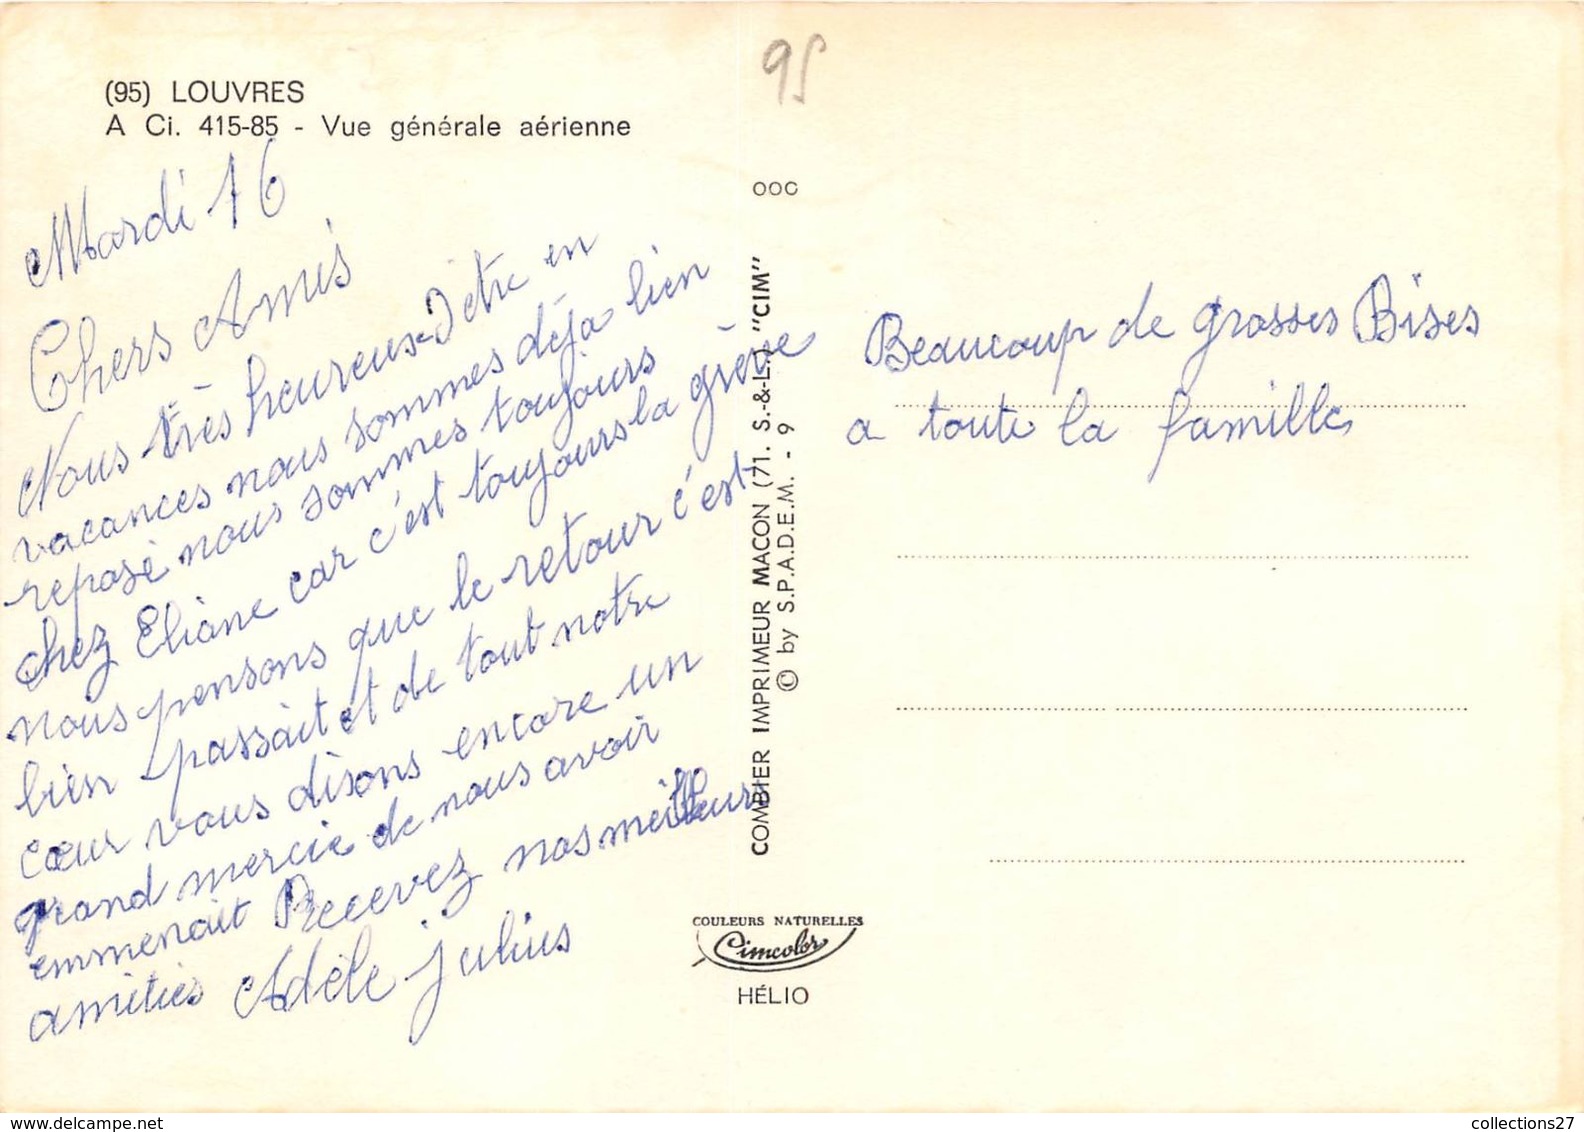 (95) LOUVRES
A Ci. 415-85 - Vue générale aérienne
Mardi 16
Chers Amis
Nous très heureux d'être en
vacances nous sommes déja bien
reposé nous sommes toujours
chez Eliane car c'est toujours la grève
nous pensons que le retour c'est
bien passait et de tout notre
cœur vous disons encore un
grand mercie de nous avoir
emmenait Recevez nos meilleurs
amitiés Adèle Julius
95
OOC
COMBIER IMPRIMEUR MACON (71. S.-&-L.) "CIM"
© by S.P.A.D.E.M. - 9
Beaucoup de grosses Bises
a toute la famille
COULEURS NATURELLES
Cimcolor
HÉLIO
collections27